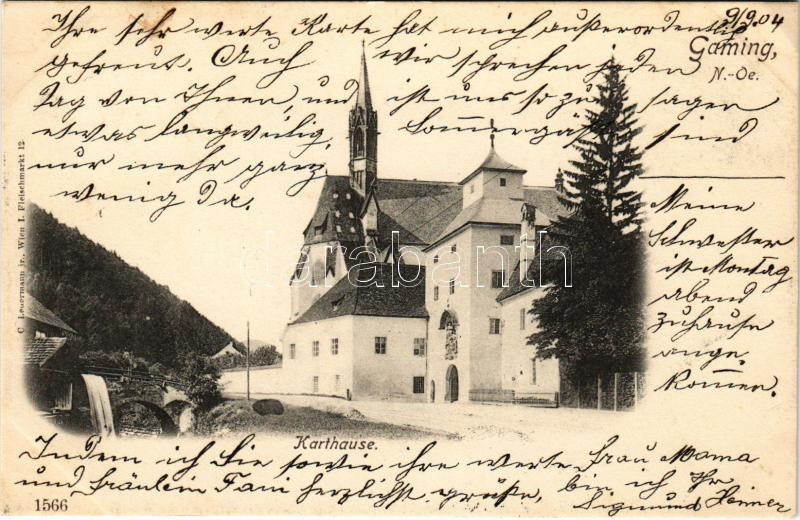 9/9.04
Ihre sehr werte Karte hat mich außerordentlich
gefreut. Auch wir sprechen jeden
Tag von Ihnen, und ist uns so zu sagen
etwas langweilig, Sommergäste sind
nur mehr ganz
wenig da.
Gaming,
N.-Oe.
Meine
Schwester
ist Montag
abend
zuhause
ange-
kommen.
C. Ledermann jr., Wien I. Fleischmarkt 12
darabanth
Karthause.
Indem ich Sie sowie ihre werte Frau Mama
und Fräulein Fani herzlichst grüße, bin ich Ihr
Sigmund
1566